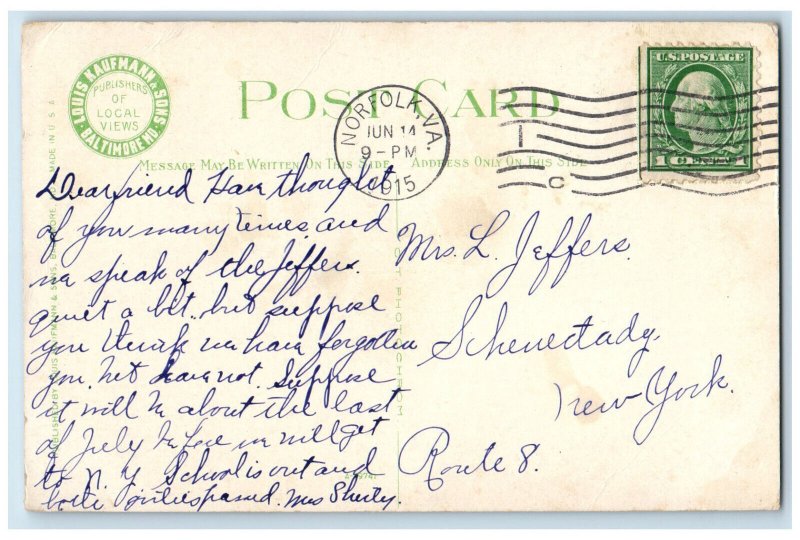 LOUIS KAUFMANN & SONS
BALTIMORE MD.
PUBLISHERS
OF
LOCAL
VIEWS
POST CARD
MESSAGE MAY BE WRITTEN ON THIS SIDE
ADDRESS ONLY ON THIS SIDE
NORFOLK, VA.
JUN 14
9-PM
1915
C
U.S. POSTAGE
1 CENT 1
Dear friend Have thought
of you many times and
we speak of the Jeffers.
quiet a bit. but suppose
you think we have forgotten
you, but have not. Suppose
it will be about the last
of July before we will get
to N. Y School is out and
both passed. Mrs
Mrs. L. Jeffers.
Schenectady
New York.
Route 8.
MADE IN U.S.A.